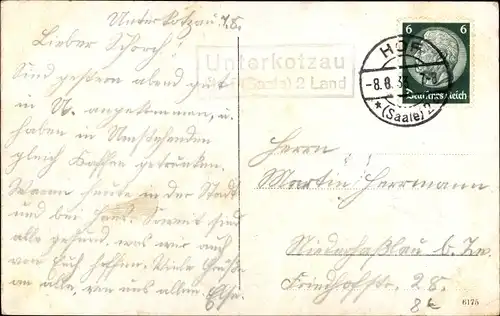 Unterkotzau 7.8.
Lieber Schorch!
Sind gestern abend gut
in U. angekommen, u.
haben in
gleich Kaffee getrunken.
Waren heute in der Stadt
und bei Hans. Soweit sind
alle gesund, was wir auch
von Euch hoffen. Viele Grüße
an alle, von uns allen Else.
Unterkotzau
(Saale) 2 Land
6 6
Deutsches Reich
HOF
-8.8.3
*(Saale)2
Herrn
Martin Herrmann
Niederhaßlau b. Zw.
Friedhofstr. 28.
6175